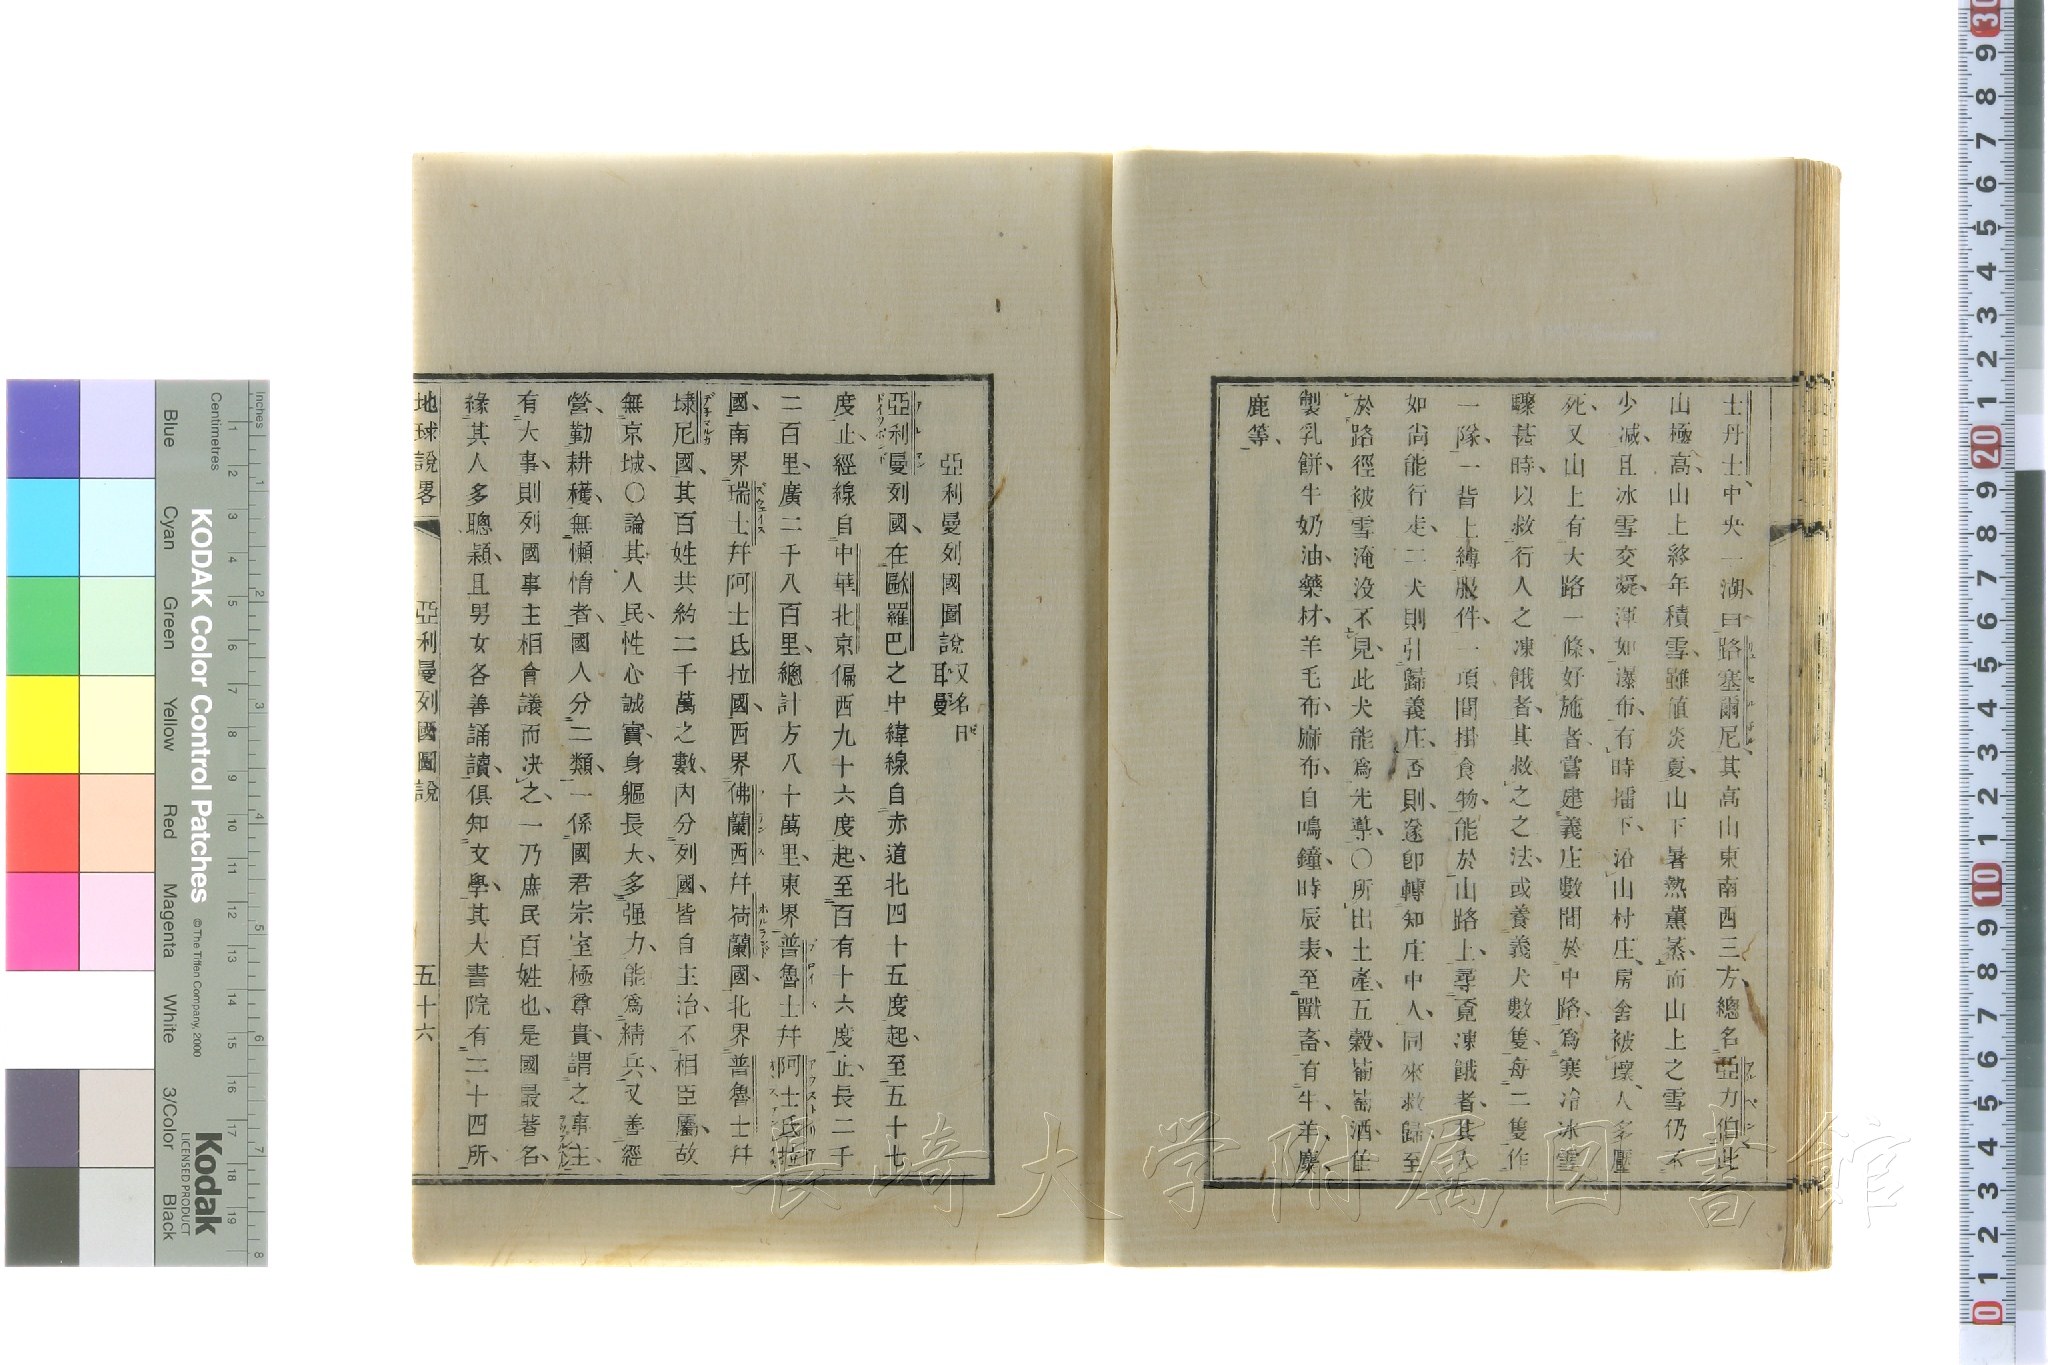 士丹士、中央一湖、曰路塞爾尼、其高山東南西三方、總名亞力伯、此
山極高、山上終年積雪、雖値炎夏、山下暑熱薰蒸、而山上之雪仍不
少減、且冰雪交凝、渾如瀑布、有時擂下、沿山村庄、房舍被壞、人多壓
死、又山上有大路一條、好施者、嘗建義庄數間於中路、爲寒冷冰雪
驟甚時、以救行人之凍餓者、其救之之法、或養義犬數隻、每二隻作
一隊、一背上縛服件、一項間掛食物、能於山路上、尋覓凍餓者、其人
如尚能行走、二犬則引歸義庄、否則、遂卽轉知庄中人、同來救歸、至
於路徑被雪淹沒不見、此犬能爲先導、〇所出土產、五穀、葡萄、酒、隹
製乳餅、牛奶油、藥材、羊毛布、麻布、自鳴鐘、時辰表、至獸畜、有牛、羊、麋、
鹿等、
亞利曼列國圖說 又名曰耶曼
亞利曼列國、在歐羅巴之中、緯線自赤道北四十五度起、至五十七
度止、經線自中華北京偏西九十六度起、至百有十六度止、長二千
二百里、廣二千八百里、總計方八十萬里、東界普魯士幷阿士氏拉
國、南界瑞士幷阿士氐拉國、西界佛蘭西幷荷蘭國、北界普魯士幷
埭尼國、其百姓共約二千萬之數、內分列國、皆自主治、不相臣屬、故
無京城、〇論其人民、性心誠實、身軀長大、多强力、能爲精兵、又善經
營、勤耕穫、無懶惰者、國人分二類、一係國君宗室極尊貴、謂之事主、
有大事、則列國事主相會議而决之、一乃庶民百姓也、是國最著名、
緣其人多聰穎、且男女各善誦讀、俱知文學、其大書院有二十四所、
地球說畧 亞利曼列國圖說 五十六
長崎大学附属図書館
KODAK Color Control Patches
© The Tiffen Company, 2000
Kodak
LICENSED PRODUCT
Inches
Centimetres
Blue Cyan Green Yellow Red Magenta White 3/Color Black